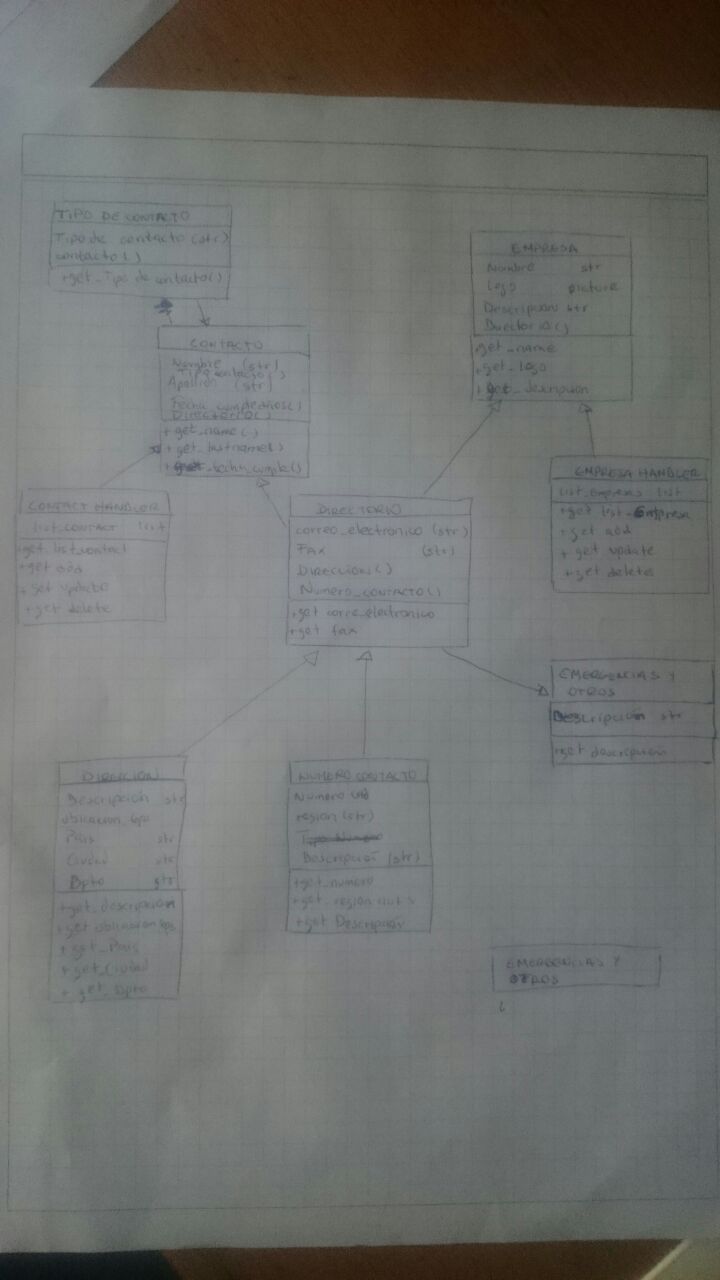 TIPO DE CONTACTO
Tipo de contacto (str)
contacto()
+get_Tipo de contacto()
EMPRESA
Nombre str
Logo picture
Descripcion str
Directorio()
+get_name
+get_logo
+get_descripcion
CONTACTO
Nombre (str)
Tipo contacto()
Apellido (str)
Fecha cumpleaños()
DIRECTORIO()
+get_name()
+get_lastname()
+get_fecha_cumple()
CONTACT HANDLER
list_CONTACT list
+get_list_contact
+get add
+get update
+get delete
DIRECTORIO
correo_electronico (str)
FAX (str)
DIRECCION()
Numero_CONTACTO()
+get corre_electronico
+get fax
EMPRESA HANDLER
list_empresas list
+get list_Empresa
+get add
+get update
+get deletes
EMERGENCIAS Y
OTROS
Descripción str
+get descripción
DIRECCION
Descripción str
ubicacion gps
Pais str
Ciudad str
Dpto str
+get_descripción
+get ubicacion gps
+get_Pais
+get_ciudad
+get_Dpto
NUMERO CONTACTO
Numero
region (str)
Tipo Numero
Descripción (str)
+get_numero
+get_region
+get Descripción
EMERGENCIAS Y
OTROS